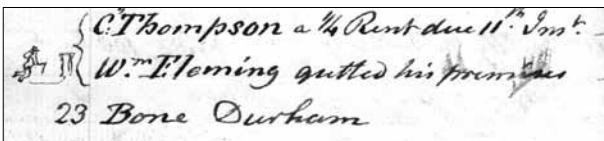 C. Thompson a ¼ Rent due 11th. Inst.
Wm. Fleming qutted his premises
23 Bone Durham